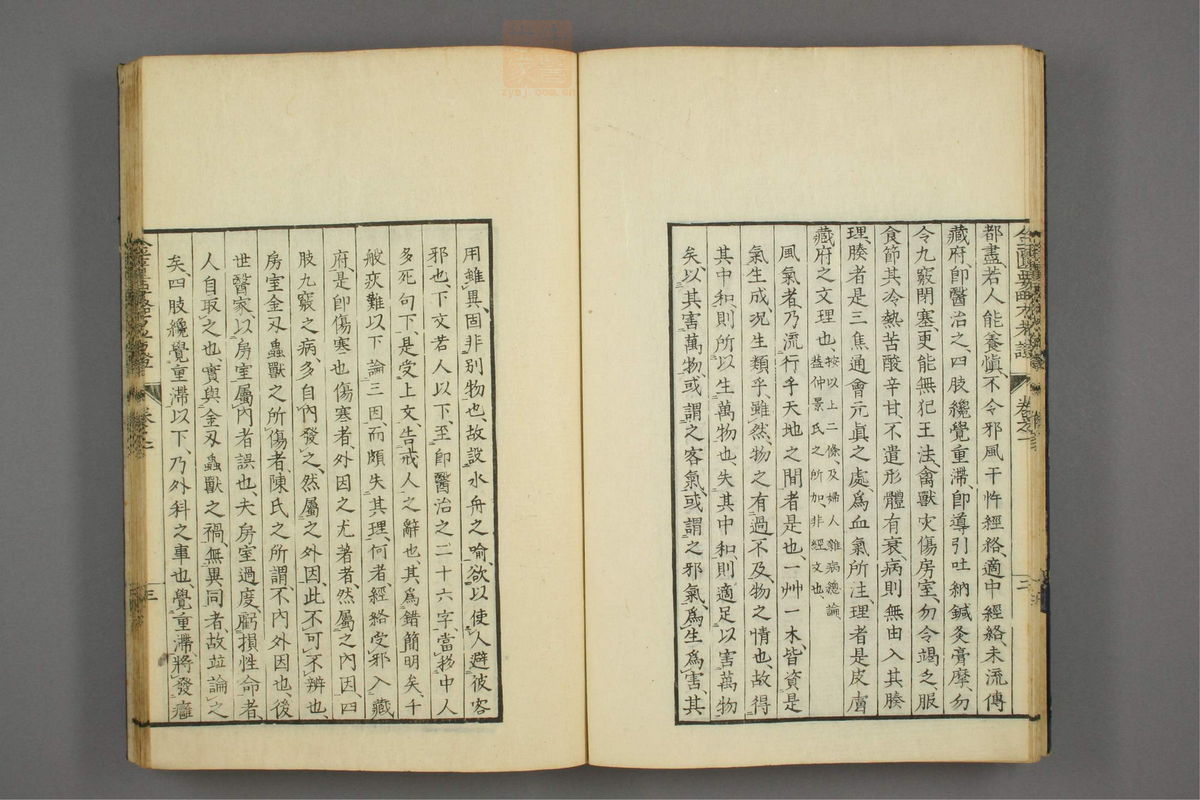 都盡若人能養愼不令邪風干忤經絡適中經絡未流傳
藏府卽醫治之四肢纔覺重滯卽導引吐納鍼灸膏摩勿
令九竅閉塞更能無犯王法禽獸灾傷房室勿令竭之服
食節其冷熱苦酸辛甘不遣形體有衰病則無由入其腠
理腠者是三焦通會元眞之處爲血氣所注理者是皮膚
藏府之文理也按以上二條及婦人雜病總論
蓋仲景氏之所加非經文也
風氣者乃流行乎天地之間者是也一艸一木皆資是
氣生成况生類乎雖然物之有過不及物之情也故得
其中和則所以生萬物也失其中和則適足以害萬物
矣以其害萬物或謂之客氣或謂之邪氣爲生爲害其
用雖異固非別物也故設水舟之喻欲以使人避彼客
邪也下文若人以下至卽醫治之二十六字當移中人
多死句下是受上文告戒人之辭也其爲錯簡明矣千
般疢難以下論三因而頗失其理何者經絡受邪入藏
府是卽傷寒也傷寒者外因之尤著者然屬之內因四
肢九竅之病多自內發之然屬之外因此不可不辨也
房室金刃蟲獸之所傷者陳氏之所謂不內外因也後
世醫家以房室屬內者誤也夫房室過度虧損性命者
人自取之也實與金刃蟲獸之禍無異同者故竝論之
矣四肢纔覺重滯以下乃外科之事也覺重滯將發癰
卷之一
三